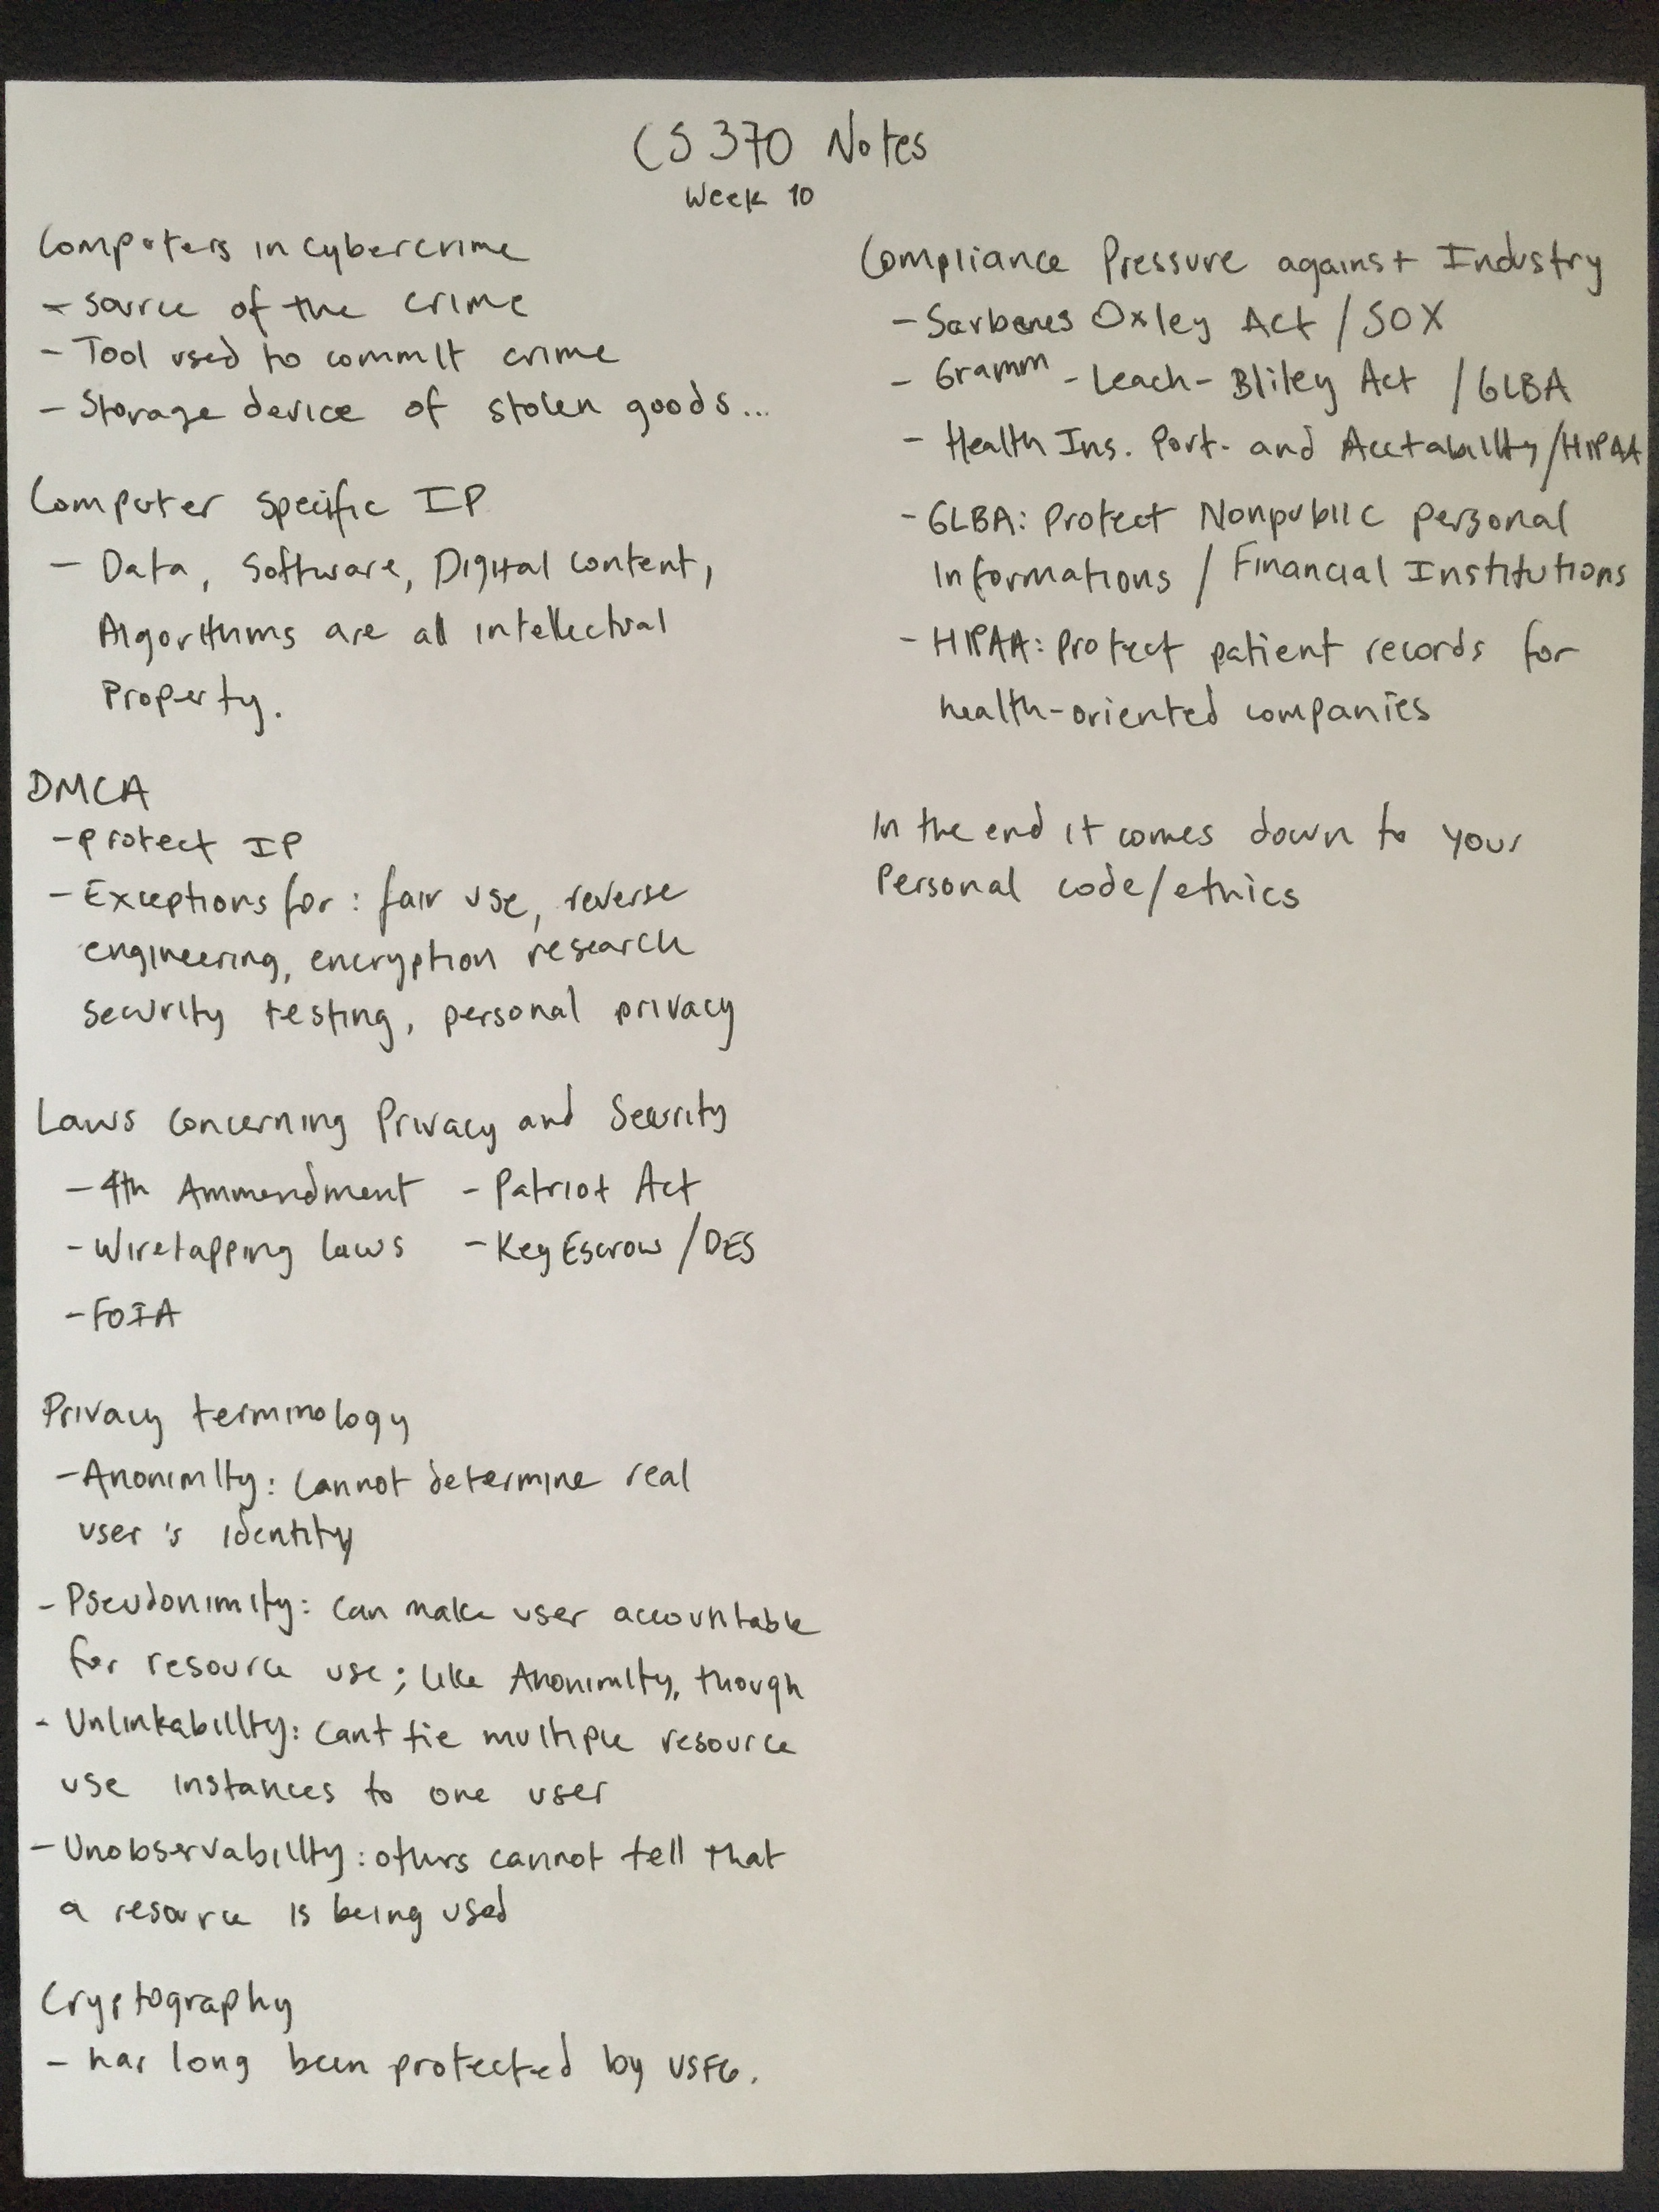 CS 370 Notes
Week 10
Computers in cybercrime
- source of the crime
- Tool used to commit crime
- Storage device of stolen goods...
Computer Specific IP
- Data, Software, Digital content,
Algorithms are all intellectual
Property.
DMCA
- protect IP
- Exceptions for: fair use, reverse
engineering, encryption research
security testing, personal privacy
Laws Concerning Privacy and Security
- 4th Ammendment - Patriot Act
- Wiretapping laws - Key Escrow / DES
- FOIA
Privacy terminology
- Anonimity: Cannot determine real
user's identity
- Pseudonimity: can make user accountable
for resource use; like Anonimity, though
- Unlinkability: cant tie multiple resource
use instances to one user
- Unobservability: others cannot tell that
a resource is being used
Cryptography
- has long been protected by USFG.
Compliance Pressure against Industry
- Sarbanes Oxley Act / SOX
- Gramm - Leach - Bliley Act / GLBA
- Health Ins. Port. and Acctability / HIPAA
- GLBA: Protect Nonpublic personal
informations / Financial Institutions
- HIPAA: Protect patient records for
health-oriented companies
In the end it comes down to your
Personal code/ethics